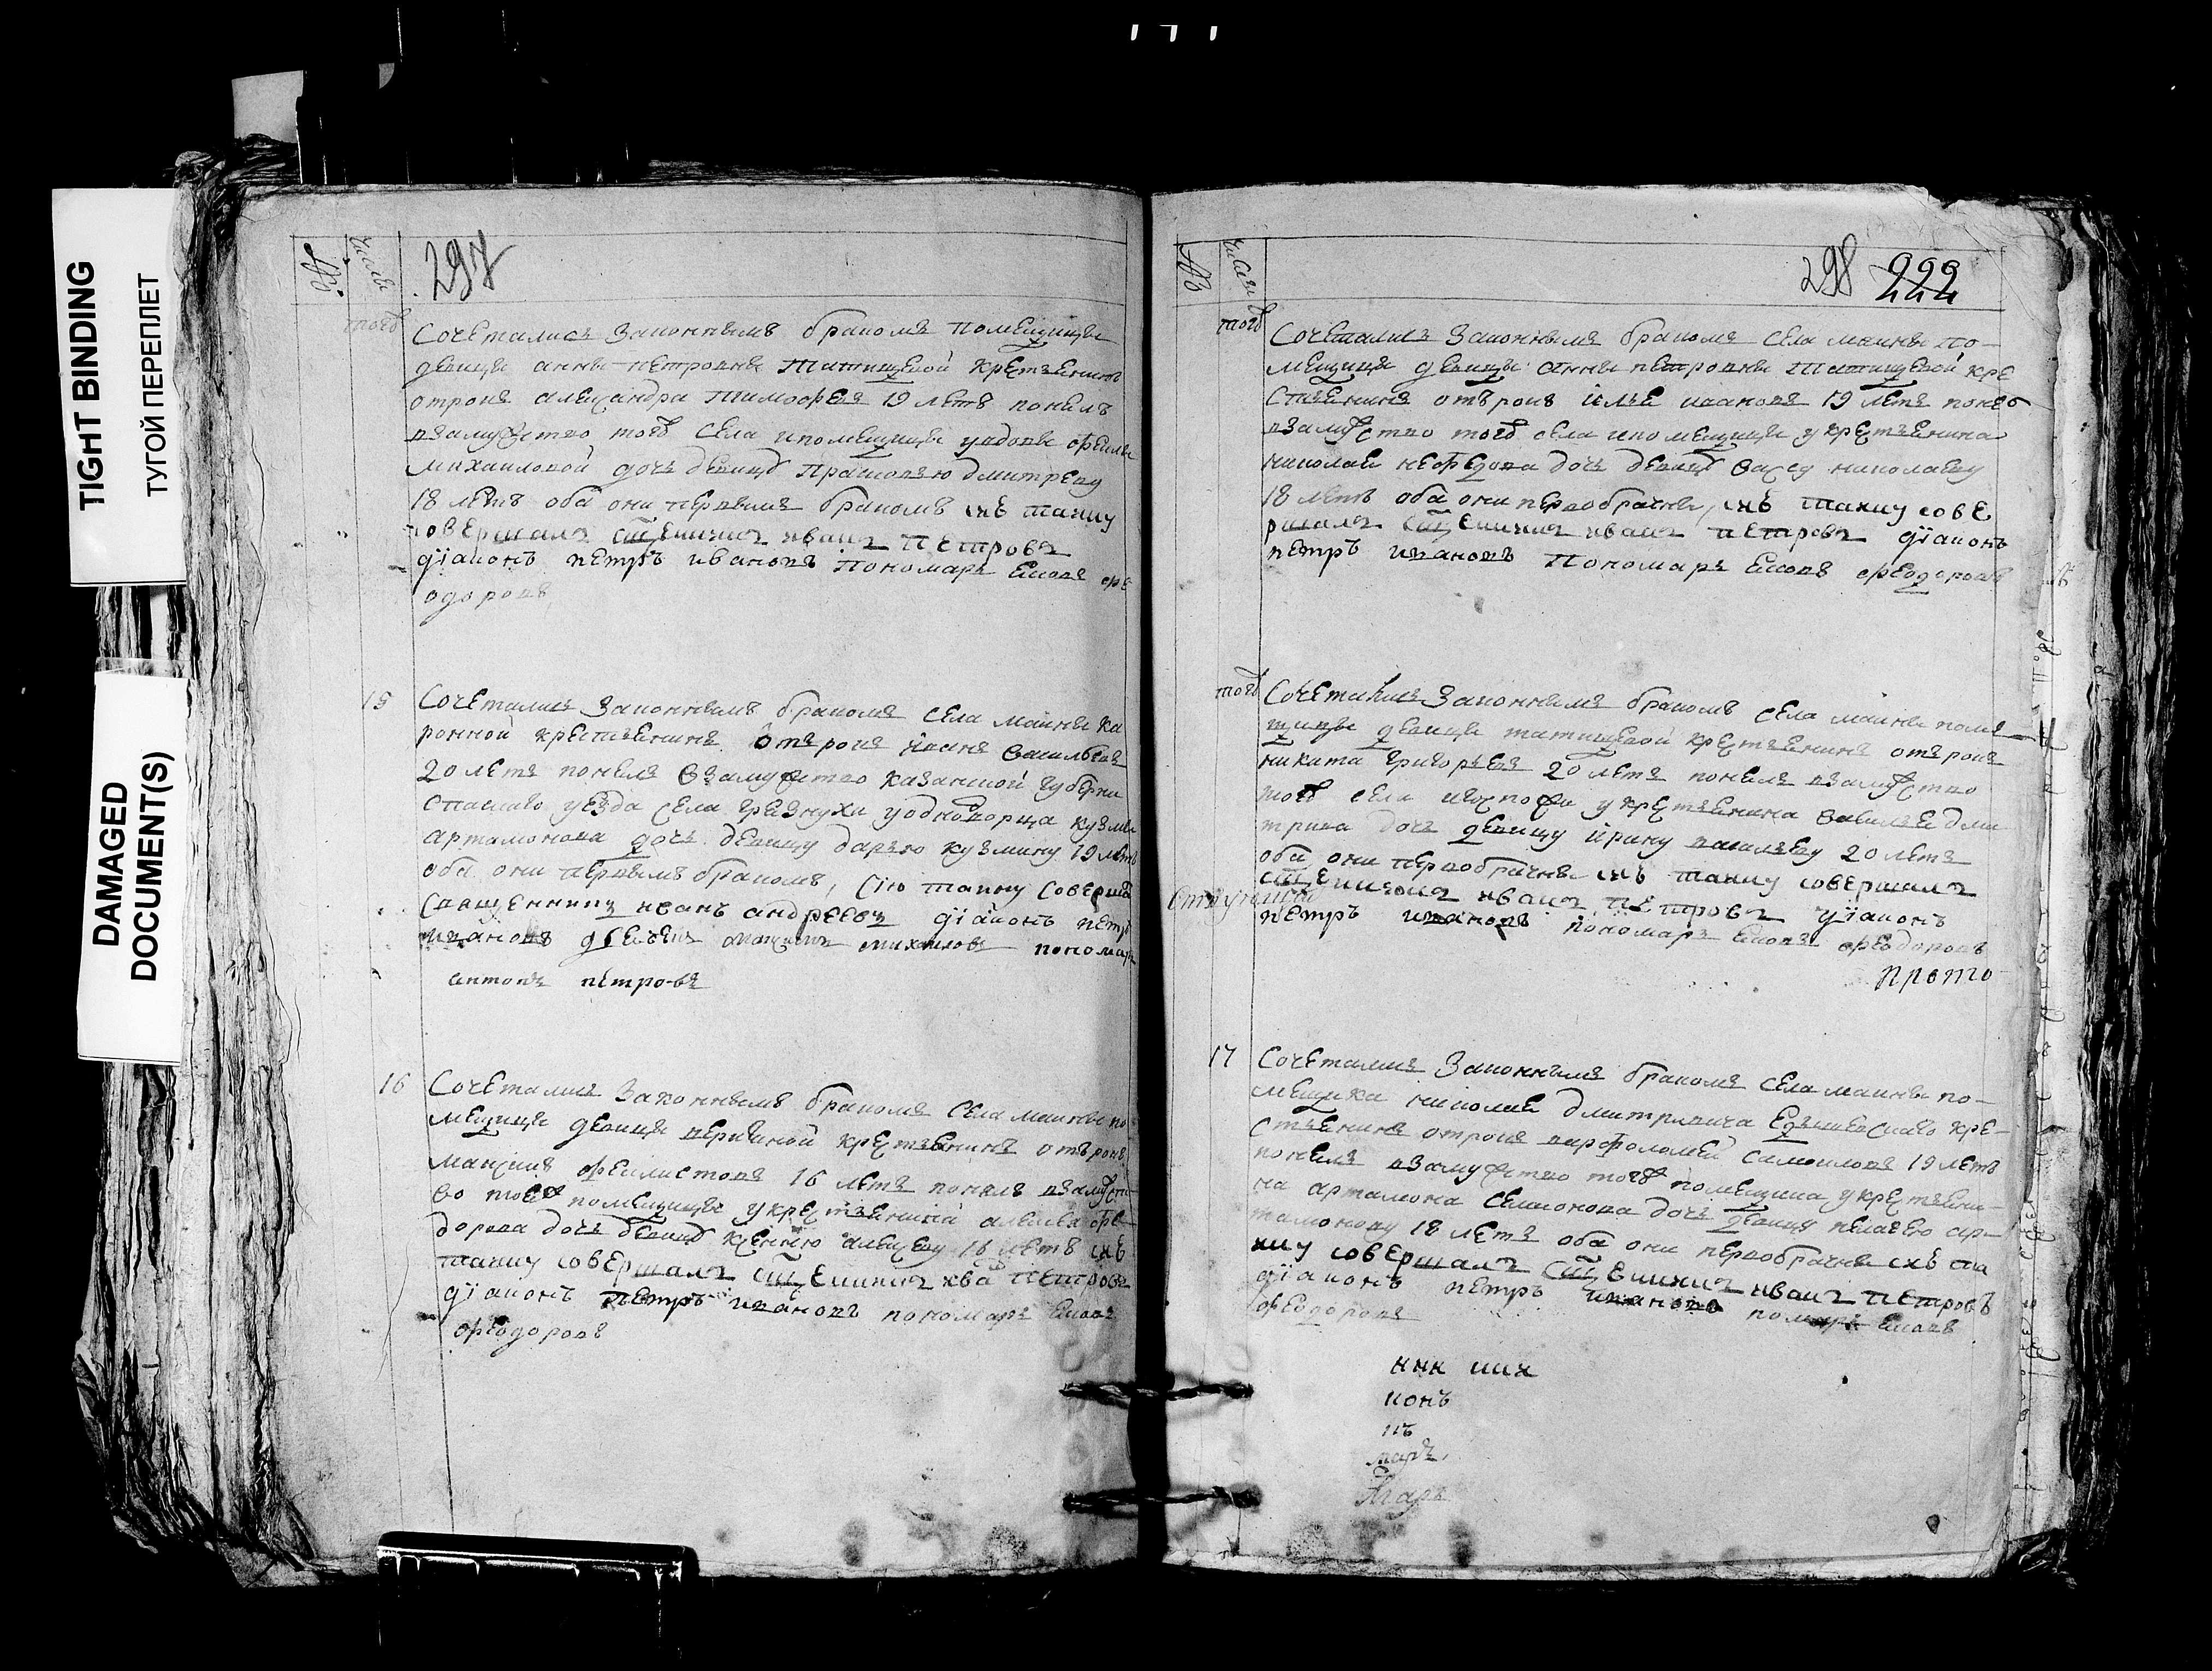 TIGHT BINDING
ТУГОЙ ПЕРЕПЛЕТ
DAMAGED
DOCUMENT(S)
№
числы
297
того
Сочетались законнымъ бракомъ помещицы
девицы анны петровны татищевой крестьенинъ
отрокъ александра тимофеевъ 19 летъ понелъ
взамужство того села ипомещицы увдовы
михаиловой дочь девицу прасковью дмитреву
18 летъ оба они первымъ бракомъ сиѣ таину
совершалъ сщенникъ иванъ петровъ
діаконъ петръ ивановъ пономарь
одоровъ
15
Сочетались законнымъ бракомъ села маины ка
ронной крестьенинъ отърокъ иванъ васильевъ
20 летъ понелъ взамужство казанской губерни
спаского уезда села грезнухи уоднодворца кузмы
артамонова дочь девицу дарью кузмину 19 летъ
оба они первымъ бракомъ, сію таину соверша
священникъ иванъ андреевъ діаконъ петръ
ивановъ дьечекъ михаиловъ пономарь
антонъ петровъ
16
Сочетались законнымъ бракомъ села маины по
мещицы девицы крестьенинъ отърокъ
максимъ феилистовъ 16 летъ понелъ взамужст
во тоей помещицы укрестьенина алексея фе
дорова дочь девицу ксению алексеву 18 летъ сиѣ
таину совершалъ сщенникъ ива петровъ
діаконъ петръ ивановъ пономарь
феодоровъ
№
числы
298 222
того
Сочетались законнымъ бракомъ села маины по-
мещицы девицы анны петровны татищевой кре
стьенинъ отърокъ илье ивановъ 19 летъ понел
взамужство того села ипомещицы укрестьенина
николаи нефедова дочь девицу николаеву
18 летъ оба они первобрачны, сиѣ таину сове
ршалъ сщенникъ иванъ петровъ діаконъ
петръ ивановъ пономарь феодоровъ
того
Сочетались законнымъ бракомъ села маины поме
щицы девицы татищевой крестьенинъ отърокъ
никита григорьевъ 20 летъ понелъ взамужство
того села игоспожи укрестьенина васильѣ дми
трива дочь девицу ирину васильеву 20 летъ
оба они первобрачны сиѣ таину совершалъ
сщенникъ иванъ петровъ діаконъ
петръ ивановъ пономарь феодоровъ
прото
17
Сочетались законнымъ бракомъ села маины по-
мещика николаи дмитривича кре-
стьенинъ отрокъ варфоломеи самоиловъ 19 летъ
понелъ взамужство того помещика укрестьени-
на артамона семионова дочь девицу пелагею ар-
тамонову 18 летъ оба они первобрачны сиѣ та
ину совершалъ сщенникъ иванъ петровъ
діаконъ петръ ивановъ помарь
феодоровъ
ник ших
конъ
нъ
марь